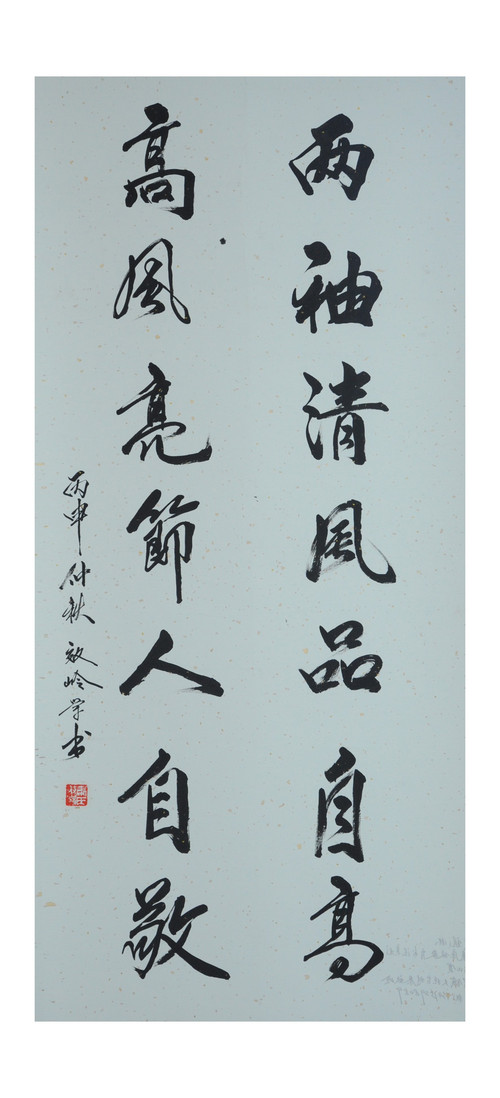 两袖清风品自高
高风亮節人自敬
丙申仲秋效岭学书